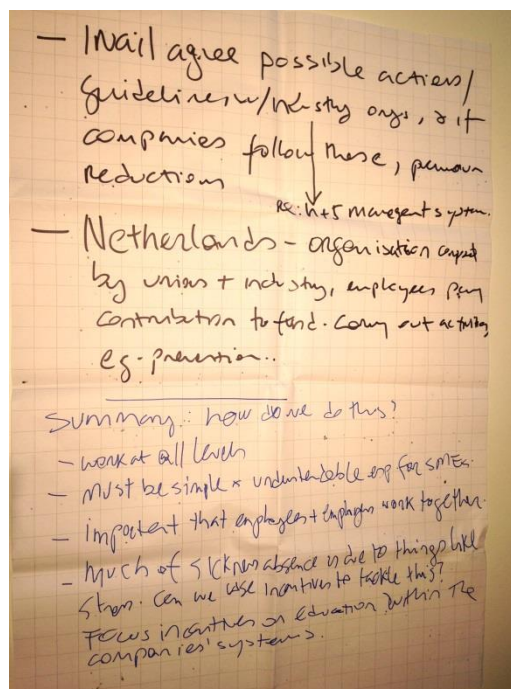 — Inail agree possible actions/
guidelines w/ industry orgs, & if
companies follow these, premium
reductions
re: h+s management system.
— Netherlands - organisation
by unions + industry, employees pay
contribution to fund. Carry out activities
eg. prevention..
Summary: how do we do this?
- work at all levels
- Must be simple & understandable esp for SMEs.
- important that employees + employers work together.
- Much of sickness absence is due to things like
stress. Can we use incentives to tackle this?
Focus incentives on education within the
companies' systems.